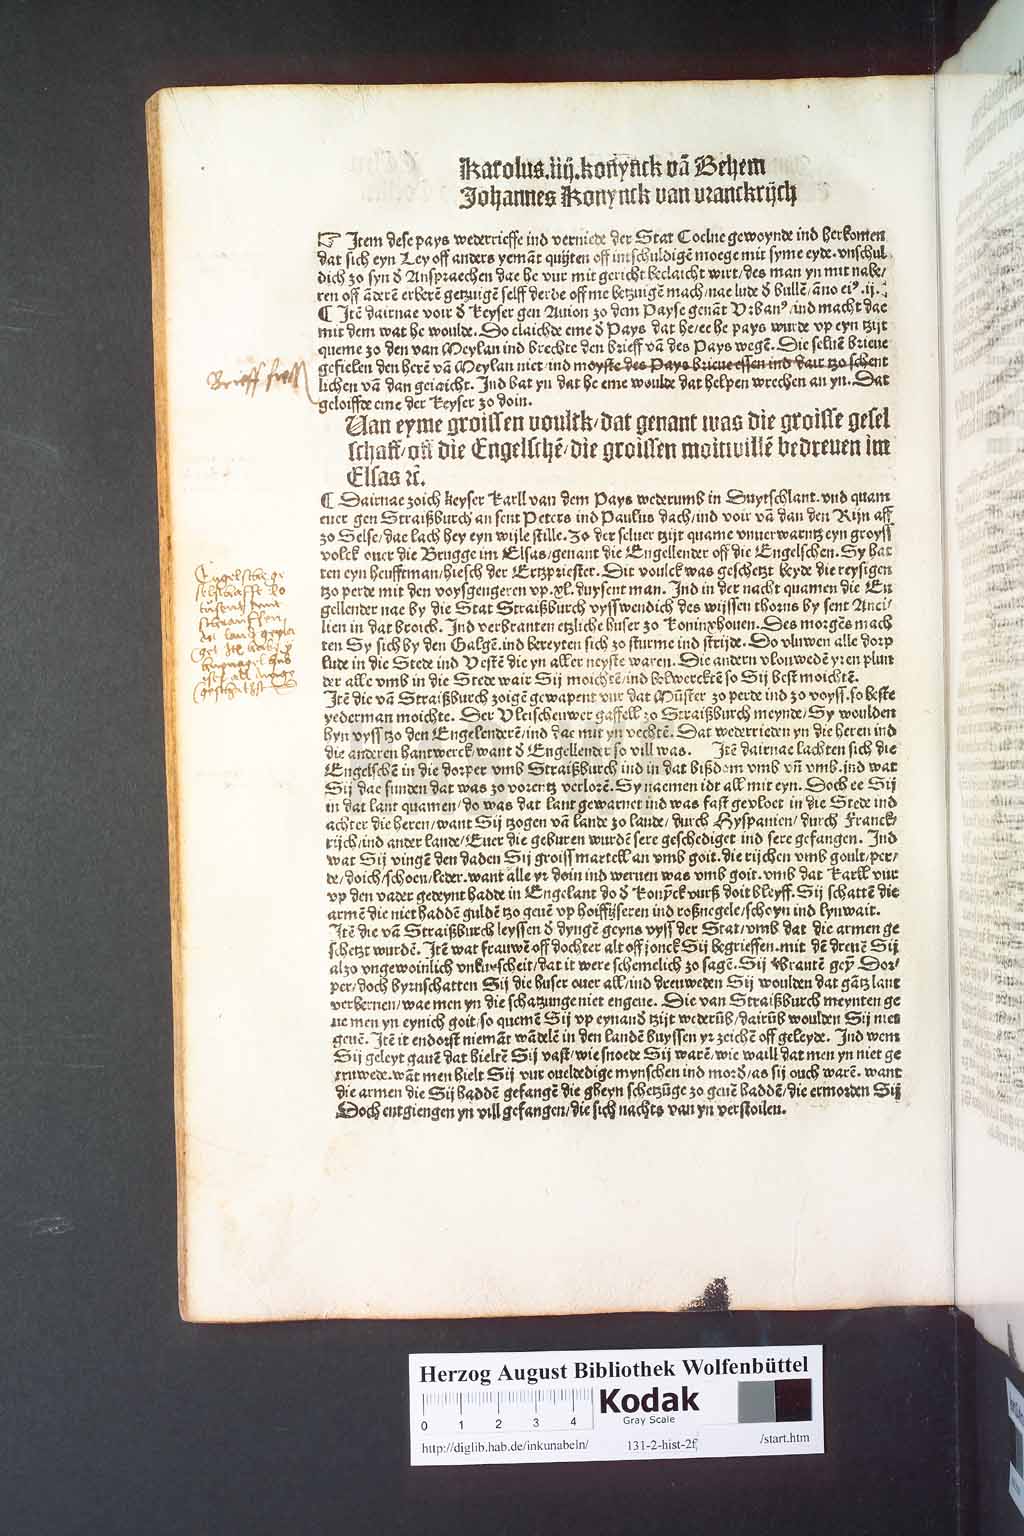 Karolus.iiij.konynck vā Behem
Johannes Konynck van vranckrijch
☞ Item dese pays wederrieffe ind vernuede der Stat Coelne gewoynde ind herkomen
dat sich eyn Ley off anders yemāt quijten off untschuldigē moege mit syme eyde. vnschul
dich zo syn ď Ansprachen dae he vur mit gericht beclaicht wirt/ des man yn mit nabe/
ren off āderē erberē getzuigē selff derde off me betzuigē mach/ nae lude ď bullē/ āno eiꝰ .ij.
¶ Itē dairnae voir ď keyser gen Auion zo dem Payse genāt Vrbanꝰ/ ind macht dae
mit dem wat he woulde. Do claichde eme ď Pays dat he/ ee he pays wurde vp eyn tzijt
queme zo den van Meylan ind brechte den brieff vā des Pays wegē. Die seluē brieue
gefielen den herē vā Meylan niet/ ind moyste des Pays brieue essen ind dair tzo schent
lichen vā dan geiaicht. Ind bat yn dat he eme woulde dat helpen wrechen an yn. Dat
geloiffde eme der keyser zo doin.
Brieff fressen
Van eyme groissen voulck/ dat genant was die groisse gesel
schaff/ off die Engelschē/ die groissen moitwillē bedreuen im
Elsas ꝛc̄.
¶ Dairnae zoich keyser Karll van dem Pays wederumb in Duytschlant. vnd quam
euer gen Straißburch an sent Peters ind Paulus dach/ ind voir vā dan den Rijn aff
zo Selse/ dae lach hey eyn wijle stille. Zo der seluer tzijt quame vnuerwarntz eyn groyss
volck ouer die Brugge im Elsas/ genant die Engellender off die Engelschen. Sy hat
ten eyn heufftman/ hiesch der Ertzpriester. Dit voulck was geschetzt beyde die reysigen
tzo perde mit den voysgengeren vp .xl. duysent man. Ind in der nacht quamen die En
gellender nae by die Stat Straißburch vysswendich des wijssen thorns by sent Arci/
lien in dat broich. Ind verbranten etzliche huser zo Koninxhouen. Des morgēs mach
ten Sy sich by den Galgē. ind bereyten sich zo sturme ind strijde. Do vluwen alle dorp
lude in die Stede ind Vestē die yn aller neyste waren. Die andern vlouwedē yren plun
der alle vmb in die Stede wair Sij moichtē/ ind belwercktē so Sij best moichtē.
Itē die vā Straißburch zoigē gewapent vur dat Mūster zo perde ind zo voyss. so beste
yederman moichte. Der Vleischeuwer gaffell zo Straißburch meynde/ Sy woulden
hyn vyss tzo den Engelenderē/ ind dae mit yn vechtē. Dat wederrieden yn die heren ind
die anderen hantwerck want ď Engellender so vill was. Itē dairnae lachten sich die
Engelschē in die dorper vmb Straißburch ind in dat bißdom vmb vn̄ vmb. ind wat
Sij dae funden dat was zo vorentz verlorē. Sy naemen idt all mit eyn. Doch ee Sij
in dat lant quamen/ do was dat lant gewarnet ind was fast gevloet in die Stede ind
achter die heren/ want Sij tzogen vā lande zo lande/ durch Hyspanien/ durch Franck/
rijch/ ind ander lande/ Euer die geburen wurdē sere geschediget ind sere gefangen. Ind
wat Sij vingē den daden Sij groiss martell an vmb goit. die rijchen vmb goult/ per/
de/ doich/ schoen/ leder. want alle yr doin ind weruen was vmb goit. vmb dat Karll vur
vp den vader gedeynt hadde in Engelant do ď Konyck vurß doit bleyff. Sij schattē die
armē die niet haddē guldē tzo geuē vp hoiffijseren ind roßnegele/ schoyn ind lynwait.
Itē die vā Straißburch leyssen ď dyngē geyns vyss der Stat/ vmb dat die armen ge
schetzt wurdē. Itē wat frauwē off dochter alt off jonck Sij begrieffen. mit dē dreuē Sij
alzo vngewoinlich vnkuyscheit/ dat it were schemelich zo sagē. Sij brantē gey Dor/
per/ doch byrnschatten Sij die huser ouer all/ ind dreuweden Sij woulden dat gātz lant
verbernen/ wae men yn die schatzunge niet engeue. Die van Straißburch meynten ge
ue men yn eynich goit/ so quemē Sij vp eynand tzijt wederūb/ dairūb woulden Sij niet
geuē. Itē it endorst niemāt wādelē in den landē buyssen yr zeichē off geleyde. Ind wem
Sij geleyt gauē dat hieltē Sij vast/ wie snoede Sij warē/ wie waill dat men yn niet ge
truwede. wāt men hielt Sij vur oueldedige mynschen ind mord/ as sij ouch warē. want
die armen die Sij haddē gefangē die gheyn schetzūge zo geuē haddē/ die ermorden Sij
Doch entgiengen yn vill gefangen/ die sich nachts van yn verstoilen.
Herzog August Bibliothek Wolfenbüttel
Kodak
Gray Scale
0 1 2 3 4
http://diglib.hab.de/inkunabeln/ 131-2-hist-2f /start.htm